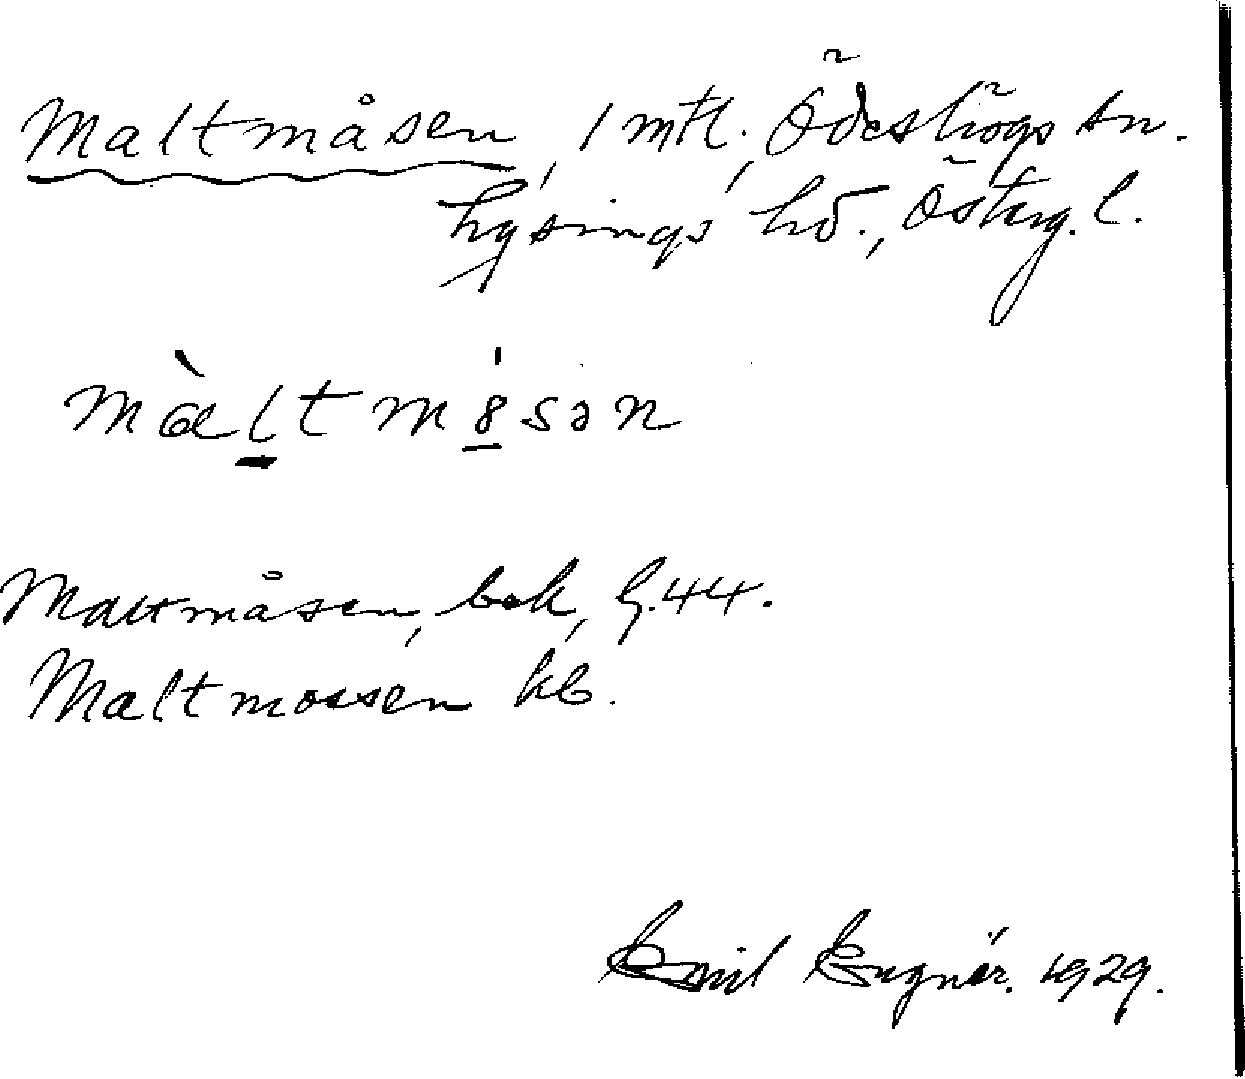 Maltmåsen, 1 mtl., Ödeshögs sn.
Lysings hd., Österg. l.
màltmósən
Maltmåsen, bok, G.44.
Maltmossen kb.
Emil Eugnér. 1929.